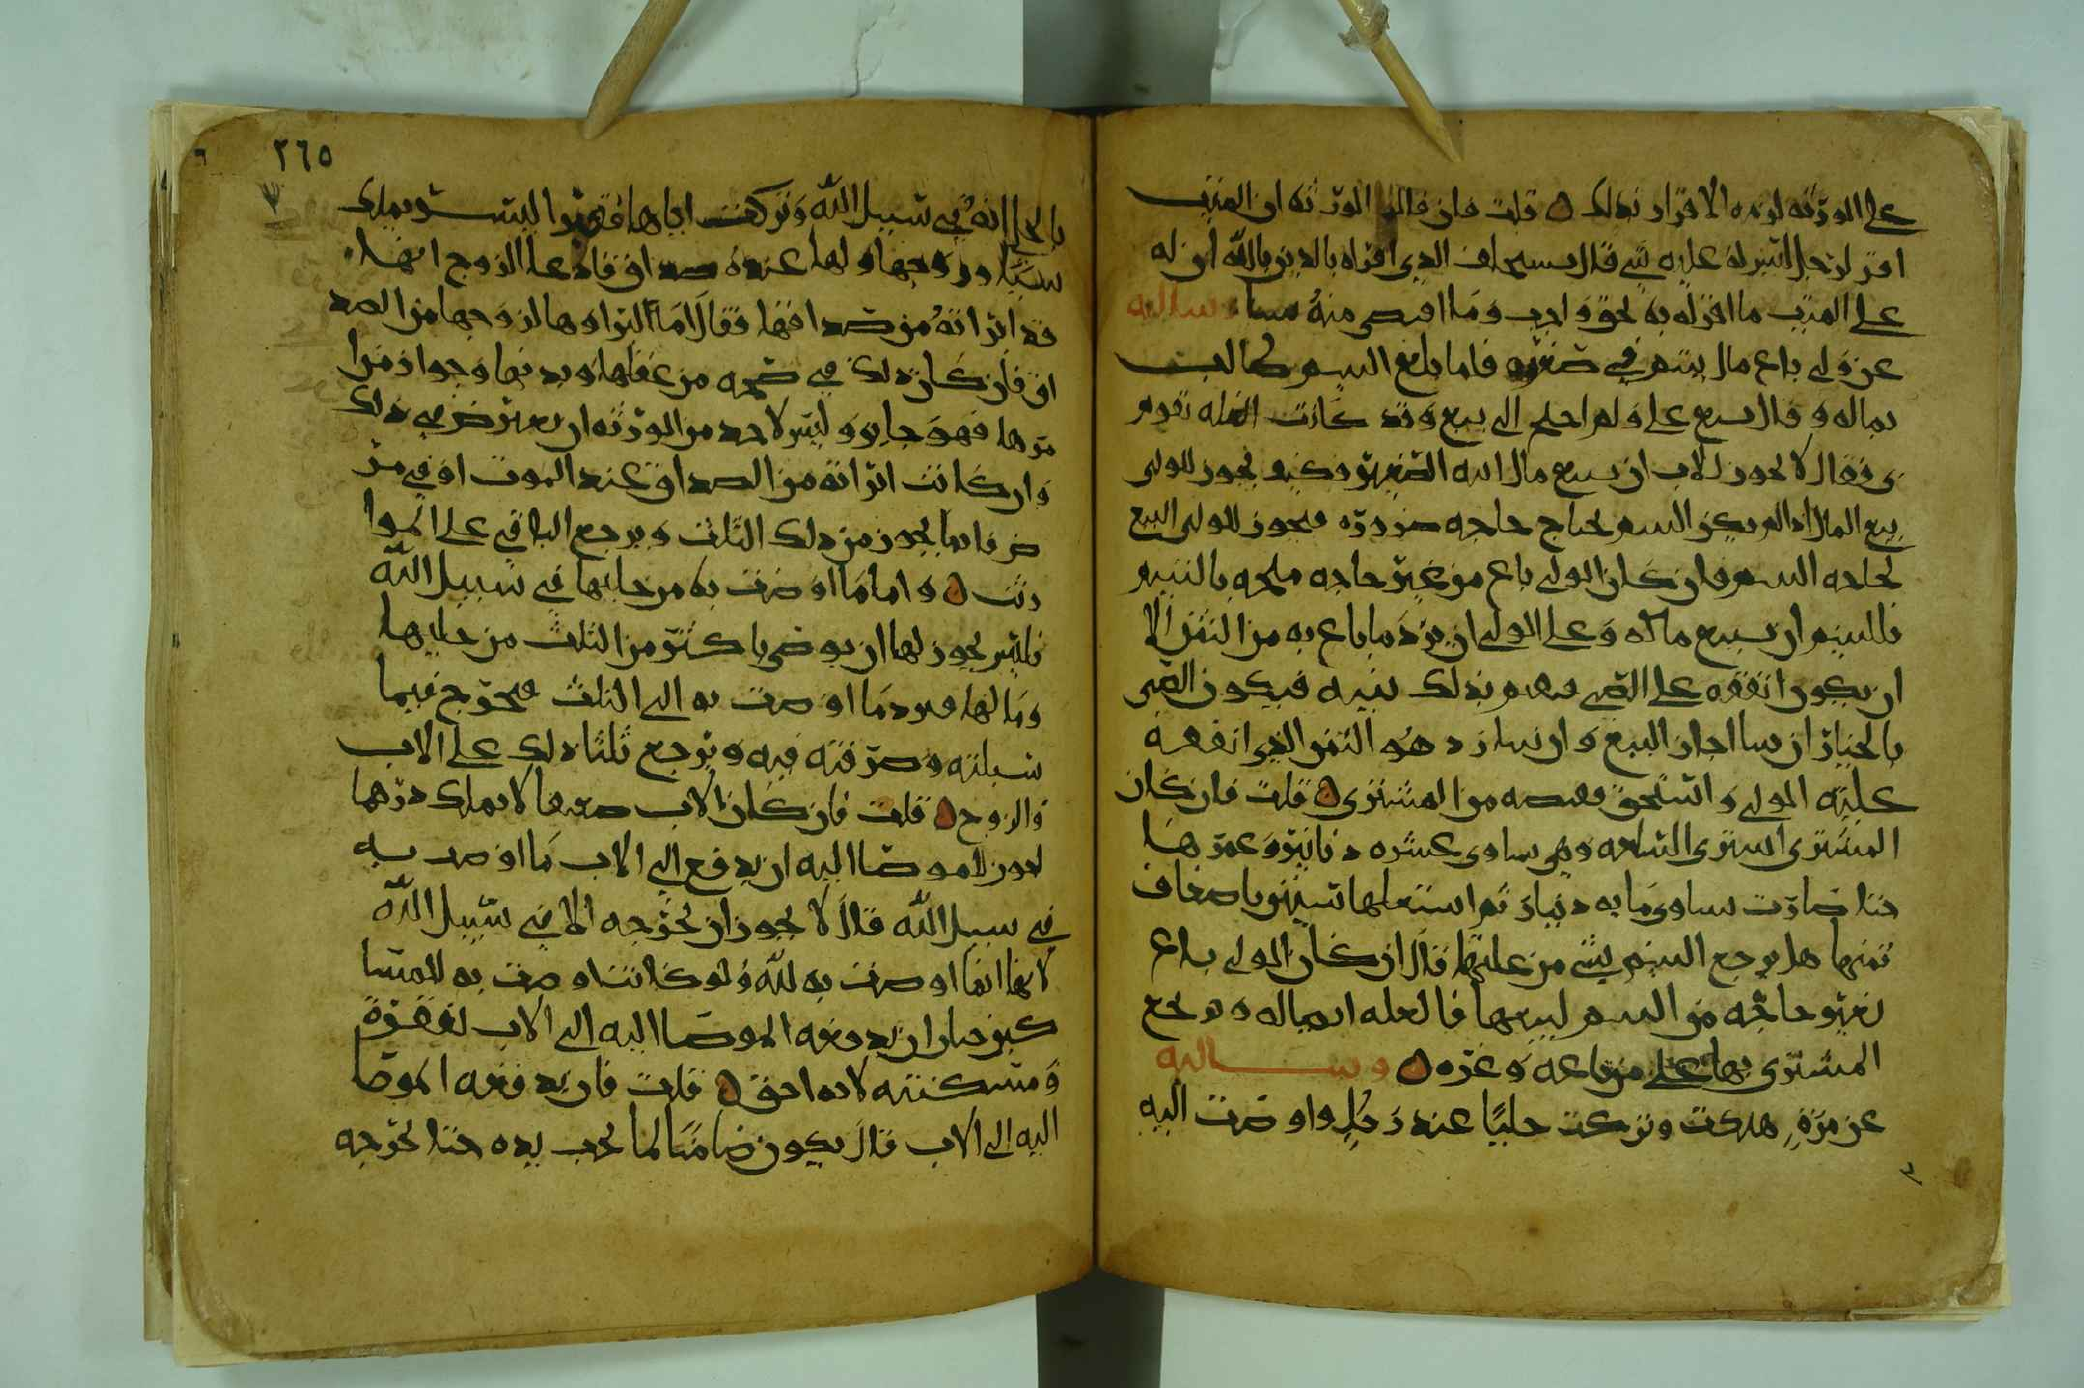 على الورثه لزمه الاقرار بذلك ۞ قلت فان قالت الورثه ان الميت
اقر لرجل ليس له عليه شي قال يستحلف الذي اقر له بالدين بالله ان له
على الميت ما اقر له به لحق واجب وما اقبض منه شيا وسالته
عن ولي باع مال يتيم في صغره فلما بلغ اليتيم طالب
بماله وقال بيع علي ولم احتج الى بيع وقد كانت الغله تقوم
بي فقال لا يجوز للاب ان يبيع مال ابنه الصغير فكيف يجوز للولي
بيع المال اذا لم يكن اليتيم يحتاج حاجه ضروره فيجوز للولي البيع
لحاجه اليتيم فان كان الولي باع من غير حاجه ملحه باليتيم
فلليتيم ان يبيع ماله وعلى الولي ان يرد ما باع به من الثمن الا
ان يكون انفقه على الصبي فيقوم بذلك بينه فيكون الصبي
بالخيار ان شا اجاز البيع وان شا رد هو الثمن الذي انفقه
عليه الولي واستحق قبضه من المشتري ۞ قلت فان كان
المشتري اشترى السلعه وهي تساوي عشره دنانير وعمرها
حتى صارت تساوي مايه دينار ثم استغلها سنين باضعاف
ثمنها هل يرجع اليتيم بشي من غلتها قال ان كان الولي باع
بغير حاجه من اليتيم لبيعها فالغله له وماله ويرجع
المشتري بها على من باعه وغره ۞ وسالته
عن مره هلكت وتركت حليا عند رجل واوصت اليه
٢٦٥
بالحلي انه في سبيل الله وتركت اباها فقيرا ليس يملك
شيا وزوجها ولها عنده صداق فادعا الزوج انها
قد ابراته من صداقها فقال اما ابراوها لزوجها من الصد
اق فان كان ذلك في صحه من عقلها وبدنها وجواز من ا
مرها فهو جايز وليس لاحد من الورثه ان يعترض في ذلك
وان كانت ابراته من الصداق عند الموت او في مر
ض فانما يجوز من ذلك الثلث ويرجع الباقي على الموا
رث ۞ واما ما اوصت به من حليها في سبيل الله
فليس يجوز لها ان توصي باكثر من الثلث من حليها
ومالها فيرد ما اوصت به الى الثلث فيخرج فيما
سبلته وصرفته فيه ويرجع ثلثا ذلك على الاب
والزوج ۞ قلت فان كان الاب ضعيفا لا يملك درهما
يجوز للموصا اليه ان يدفع الى الاب ما اوصت به
في سبيل الله قال لا يجوز ان يخرجه الا في سبيل الله
لانها انما اوصت به لله ولو كانت اوصت به للمسا
كين جاز ان يدفعه الموصا اليه الى الاب لفقره
ومسكنته لانه احق ۞ قلت فان دفعه الموصا
اليه الى الاب قال يكون ضامنا لما يجب يده حتى يخرجه